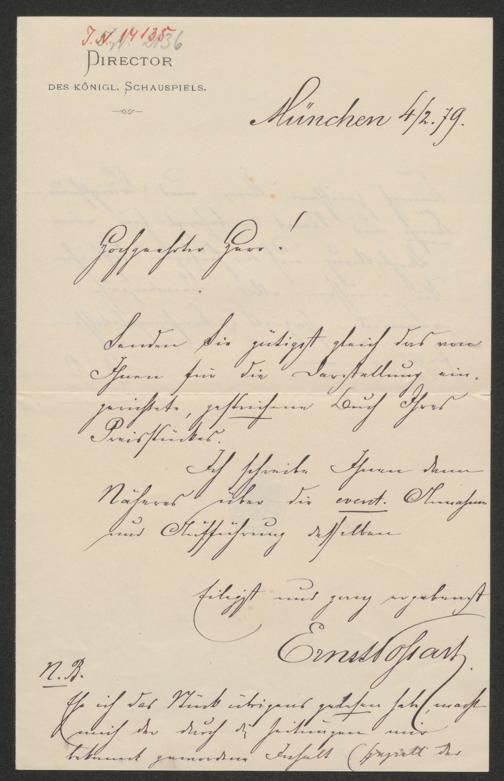 J.N. 14135
DIRECTOR
DES KÖNIGL. SCHAUSPIELS.
München 4/2. 79.
Hochgeehrter Herr!
Senden Sie gütigst gleich das von
Ihnen für die Darstellung ein-
gerichtete, gestrichene Buch Ihres
Preisstückes.
Ich schreibe Ihnen dann
Näheres über die event. Annahme
und Aufführung desselben
Eiligst und ganz ergebenst
Ernst Possart.
N.B.
Ehe ich das Stück übrigens gelesen habe, macht
mich der durch die Zeitungen mir
bekannt gewordene Inhalt (speziell der